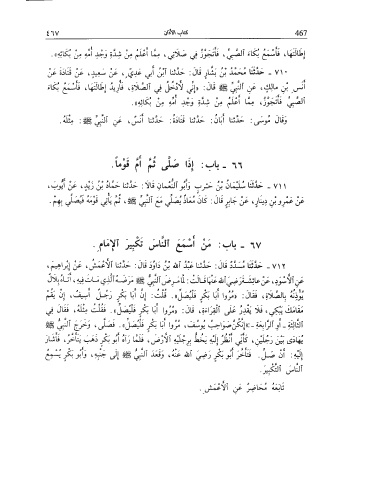 467 كتاب الأذان ٤٦٧
إِطَالَتَهَا، فَأَسْمَعُ بُكَاءَ الصَّبِيِّ، فَأَتَجَوَّزُ فِي صَلَاتِي، مِمَّا أَعْلَمُ مِنْ شِدَّةِ وَجْدِ أُمِّهِ مِنْ بُكَائِهِ».
٧١٠ - حَدَّثَنَا مُحَمَّدُ بْنُ بَشَّارٍ قَالَ: حَدَّثَنَا ابْنُ أَبِي عَدِيٍّ، عَنْ سَعِيدٍ، عَنْ قَتَادَةَ عَنْ
أَنَسِ بْنِ مالِكٍ، عَنِ النَّبِيِّ ﷺ قَالَ: «إِنِّي لَأَدْخُلُ فِي الصَّلَاةِ، فَأُرِيدُ إِطَالَتَهَا، فَأَسْمَعُ بُكَاءَ
الصَّبِيِّ فَأَتَجَوَّزُ، مِمَّا أَعْلَمُ مِنْ شِدَّةِ وَجْدِ أُمِّهِ مِنْ بُكَائِهِ».
وَقَالَ مُوسَى: حَدَّثَنَا أَبَانُ: حَدَّثَنَا قَتَادَةُ: حَدَّثَنَا أَنَسٌ، عَنِ النَّبِيِّ ﷺ: مِثْلَهُ.
٦٦ - باب: إِذَا صَلَّى ثُمَّ أَمَّ قَوْماً.
٧١١ - حَدَّثَنَا سُلَيْمَانُ بْنُ حَرْبٍ وَأَبو النُّعْمَانِ قَالَا: حَدَّثَنَا حَمَّادُ بْنُ زَيْدٍ، عَنْ أَيُّوبَ،
عَنْ عَمْرِو بْنِ دِينَارٍ، عَنْ جَابِرٍ قَالَ: كَانَ مُعَاذٌ يُصَلِّي مَعَ النَّبِيِّ ﷺ، ثُمَّ يَأْتِي قَوْمَهُ فَيُصَلِّي بِهِمْ.
٦٧ - باب: مَنْ أَسْمَعَ النَّاسَ تَكْبِيرَ الإِمَامِ.
٧١٢ - حَدَّثَنَا مُسَدَّدٌ قَالَ: حَدَّثَنَا عَبْدُ اللهِ بْنُ دَاوُدَ قَالَ: حَدَّثَنَا الْأَعْمَشُ، عَنْ إِبْرَاهِيمَ،
عَنِ الْأَسْوَدِ، عَنْ عَائِشَةَ رَضِيَ اللهُ عَنْهَا قَالَتْ: لَمَّا مَرِضَ النَّبِيُّ ﷺ مَرَضَهُ الَّذِي مَاتَ فِيهِ، أَتَاهُ بِلَالٌ
يُؤْذِنُهُ بِالصَّلَاةِ، فَقَالَ: «مُرُوا أَبَا بَكْرٍ فَلْيُصَلِّ». قُلْتُ: إِنَّ أَبَا بَكْرٍ رَجُلٌ أَسِيفٌ، إِنْ يَقُمْ
مَقَامَكَ يَبْكِي، فَلَا يَقْدِرُ عَلَى الْقِرَاءَةِ، قَالَ: «مُرُوا أَبَا بَكْرٍ فَلْيُصَلِّ». فَقُلْتُ مِثْلَهُ، فَقَالَ فِي
الثَّالِثَةِ - أَوِ الرَّابِعَةِ -: «إِنَّكُنَّ صَوَاحِبُ يُوسُفَ، مُرُوا أَبَا بَكْرٍ فَلْيُصَلِّ». فَصَلَّى، وَخَرَجَ النَّبِيُّ ﷺ
يُهَادَى بَيْنَ رَجُلَيْنِ، كَأَنِّي أَنْظُرُ إِلَيْهِ يَخُطُّ بِرِجْلَيْهِ الْأَرْضَ، فَلَمَّا رَآهُ أَبُو بَكْرٍ ذَهَبَ يَتَأَخَّرُ، فَأَشَارَ
إِلَيْهِ: أَنْ صَلِّ. فَتَأَخَّرَ أَبُو بَكْرٍ رَضِيَ اللهُ عَنْهُ، وَقَعَدَ النَّبِيُّ ﷺ إِلَى جَنْبِهِ، وَأَبُو بَكْرٍ يُسْمِعُ
النَّاسَ التَّكْبِيرَ.
تَابَعَهُ مُحَاضِرٌ عَنِ الْأَعْمَشِ.